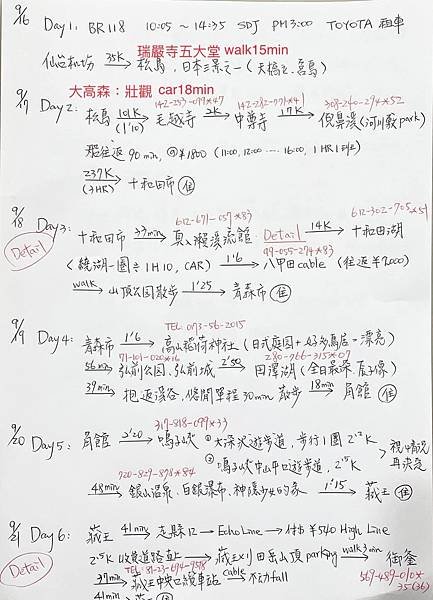 9/16 Day 1: BR118 10:05 ~ 14:35 SDJ PM3:00 TOYOTA 租車
瑞嚴寺五大堂 walk15min
仙台机場 35K→ 松島, 日本三景之一 (天橋立, 宮島)
大高森：壯觀 car18min
142-253-099*47 142-282-771*41 308-240-274*52
9/17 Day 2: 松島 101K (1'10)→ 毛越寺 2K→ 中尊寺 17K→ 猊鼻溪 (河川敷 park)
船往返 90 min, @¥1800 (11:00, 12:00 ‥‥ 16:00, 1HR1班)
237K (3HR)→ 十和田市 住
612-671-057*83 612-302-705*51
9/18 Day 3: 十和田市 37min→ 奧入瀨溪流館. Detail 14K→ 十和田湖
Detail
99-055-274*83
(繞湖一圈≒1H10, CAR) 1'6→ 八甲田cable (往返¥2000)
walk→ 山頂公園散步 1'25→ 青森市 住
TEL: 0173-56-2015
9/19 Day 4: 青森市 1'6→ 高山稻荷神社 (日式庭園+好多鳥居, 漂亮)
71-101-020*16 280-766-315*07
56min→ 弘前公園. 弘前城 2'50→ 田澤湖 (全日最深, 辰子像)
39min→ 抱返溪谷, 悠閒單程30min 散步 18min→ 角館 住
317-818-099*33
9/20 Day 5: 角館 2'20→ 鳴子峽 ① 大深沢遊步道, 步行1圈 2.2K
② 鳴子峽中山平口遊步道, 2.5K
視情況再決定
720-829-878*84
48min→ 銀山溫泉. 白銀瀑布, 神隱少女的家 1'15→ 藏王 住
9/21 Day 6: 藏王 41min→ 走縣12 → Echo Line → 付¥540 High Line
Detail
2.5K 收費道路直上→ 藏王刈田岳山頂 parking walk3min→ 御釜
TEL: 81-23-694-9518 569-489-010* 35(36)
37min→ 藏王中央口纜車站 cable→ 不動fall
41min→